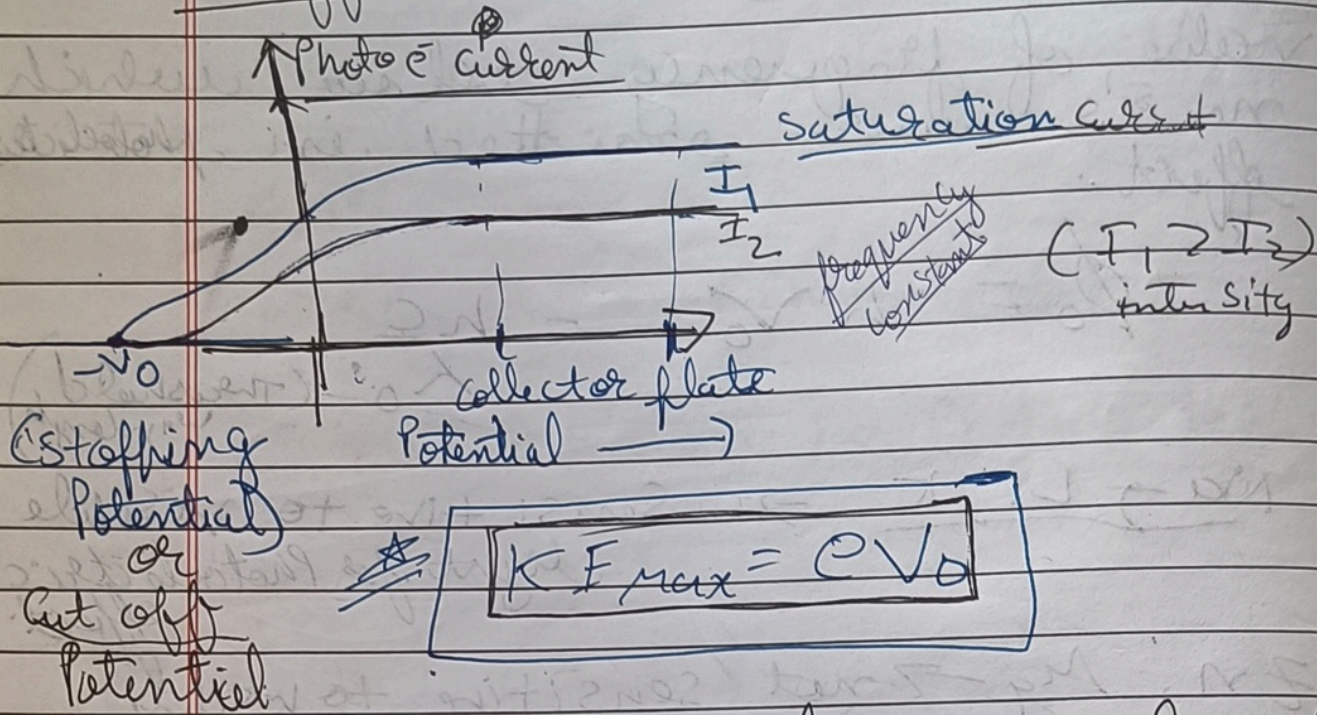 Photo e⁻ current
saturation current
I₁
I₂
frequency
constant
(I₁ > I₂)
intensity
-V0
collector plate
Potential →
(stopping
Potential)
or
Cut off
Potential
KEmax = eV0